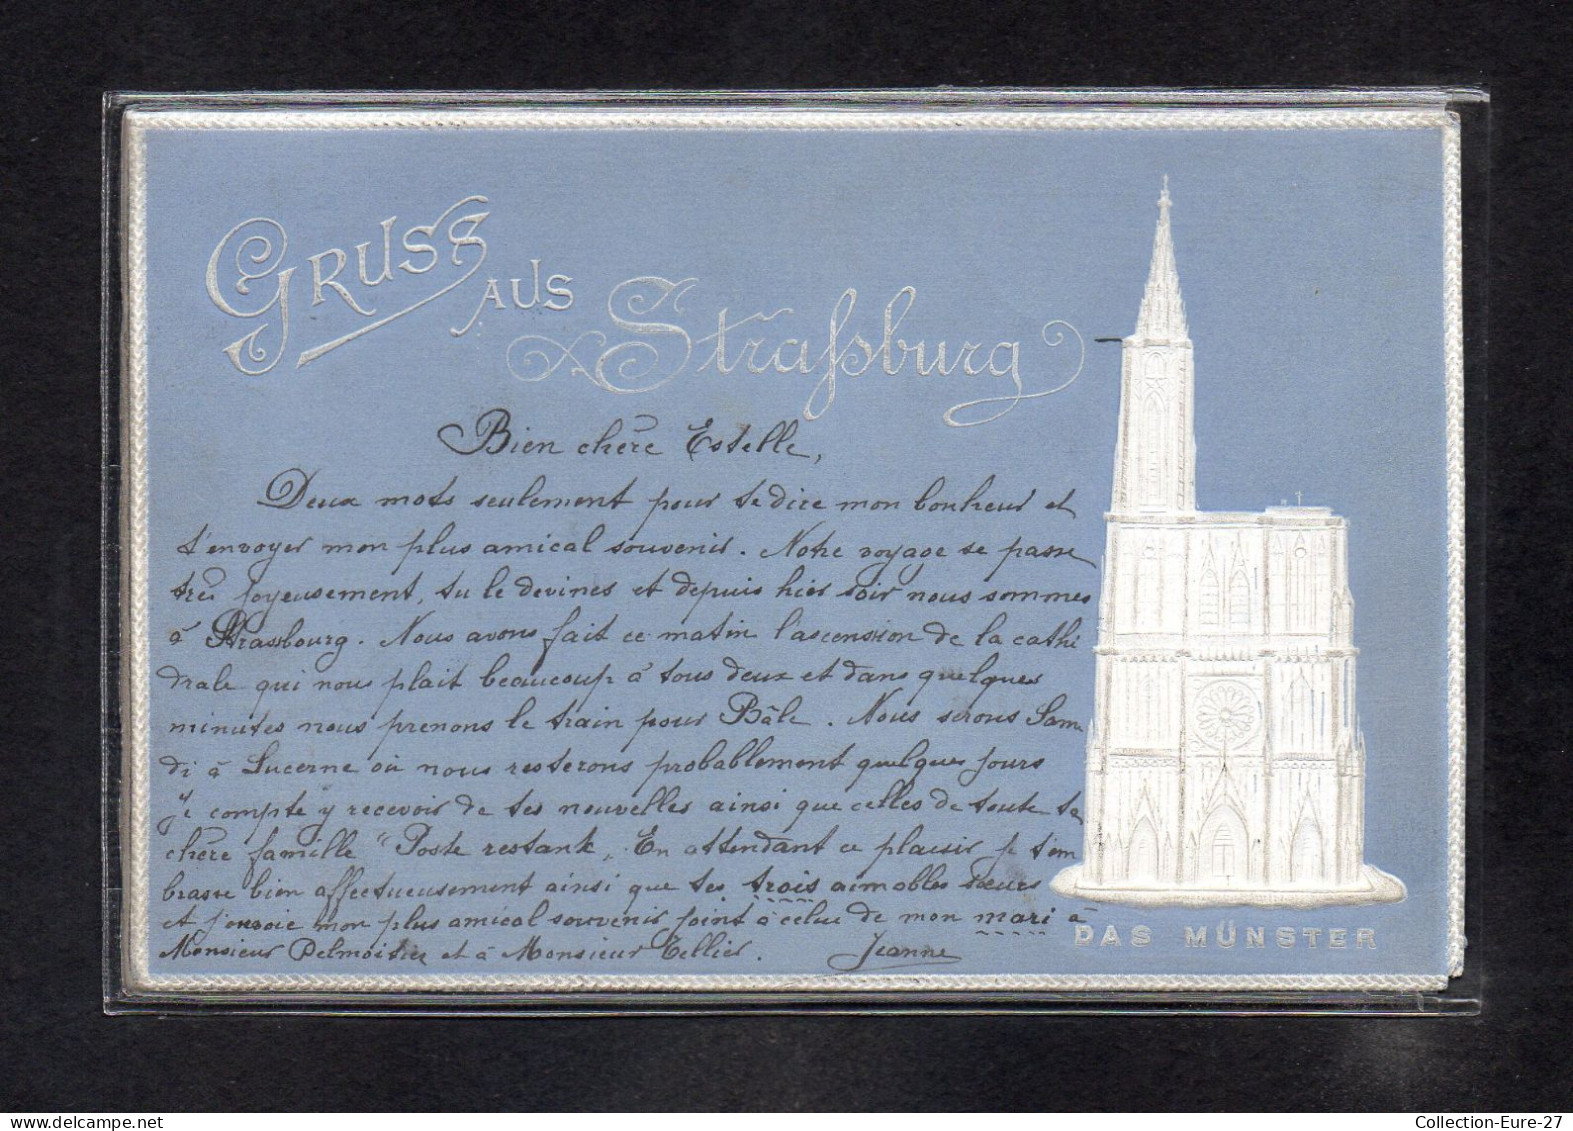 Gruss aus Straßburg
Bien chère Estelle,
Deux mots seulement pour te dire mon bonheur et
t'envoyer mon plus amical souvenir. Notre voyage se passe
très joyeusement, tu le devines et depuis hier soir nous sommes
à Strassbourg. Nous avons fait ce matin l'ascension de la cathé
drale qui nous plait beaucoup à tous deux et dans quelques
minutes nous prenons le train pour Bâle. Nous serons Same
di à Lucerne où nous resterons probablement quelques jours
je compte y recevoir de tes nouvelles ainsi que celles de toute ta
chère famille "Poste restante". En attendant ce plaisir je t'em
brasse bien affectueusement ainsi que tes trois aimables sœurs
et j'envoie mon plus amical souvenir joint à celui de mon mari à
Monsieur Delmoitiez et à Monsieur Tellier. Jeanne
DAS MÜNSTER
Collection-Eure-27